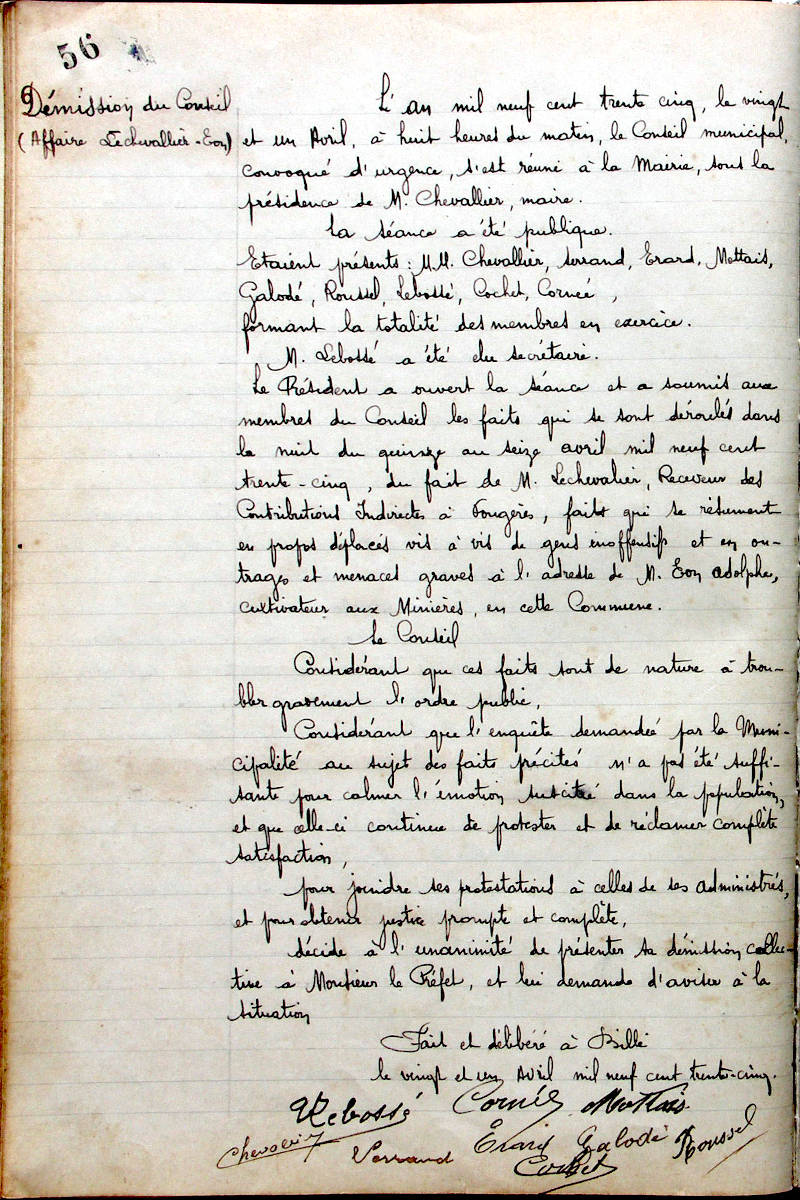 56
Démission du Conseil
(Affaire Lechevallier-Eon)
L'an mil neuf cent trente cinq, le vingt
et un Avril, à huit heures du matin, le Conseil municipal,
convoqué d'urgence, s'est réuni à la Mairie, sous la
présidence de M. Chevallier, maire.
La séance a été publique.
Etaient présents : M.M. Chevallier, Serrand, Erard, Mottais,
Galodé, Roussel, Lebossé, Cochet, Cornée,
formant la totalité des membres en exercice.
M. Lebossé a été élu secrétaire.
Le Président a ouvert la séance et a soumis aux
membres du Conseil les faits qui se sont déroulés dans
la nuit du quinze au seize avril mil neuf cent
trente-cinq, du fait de M. Lechevalier, Receveur des
Contributions Indirectes à Fougères, faits qui se résument
en propos déplacés vis à vis de gens inoffensifs et en ou-
trages et menaces graves à l'adresse de M. Eon Adolphe,
cultivateur aux Minières, en cette Commune.
Le Conseil
Considérant que ces faits sont de nature à trou-
bler gravement l'ordre public,
Considérant que l'enquête demandée par la Muni-
cipalité au sujet des faits précités n'a pas été suffi-
sante pour calmer l'émotion suscitée dans la population,
et que celle-ci continue de protester et de réclamer complète
satisfaction,
pour joindre ses protestations à celles de ses administrés,
et pour obtenir justice prompte et complète,
décide à l'unanimité de présenter sa démission collec-
tive à Monsieur le Préfet, et lui demande d'aviser à la
situation
Fait et délibéré à Billé
le vingt et un Avril mil neuf cent trente-cinq.
Lebossé Cornée Mottais
Chevalier Serrand Erard Galodé Roussel
Cochet